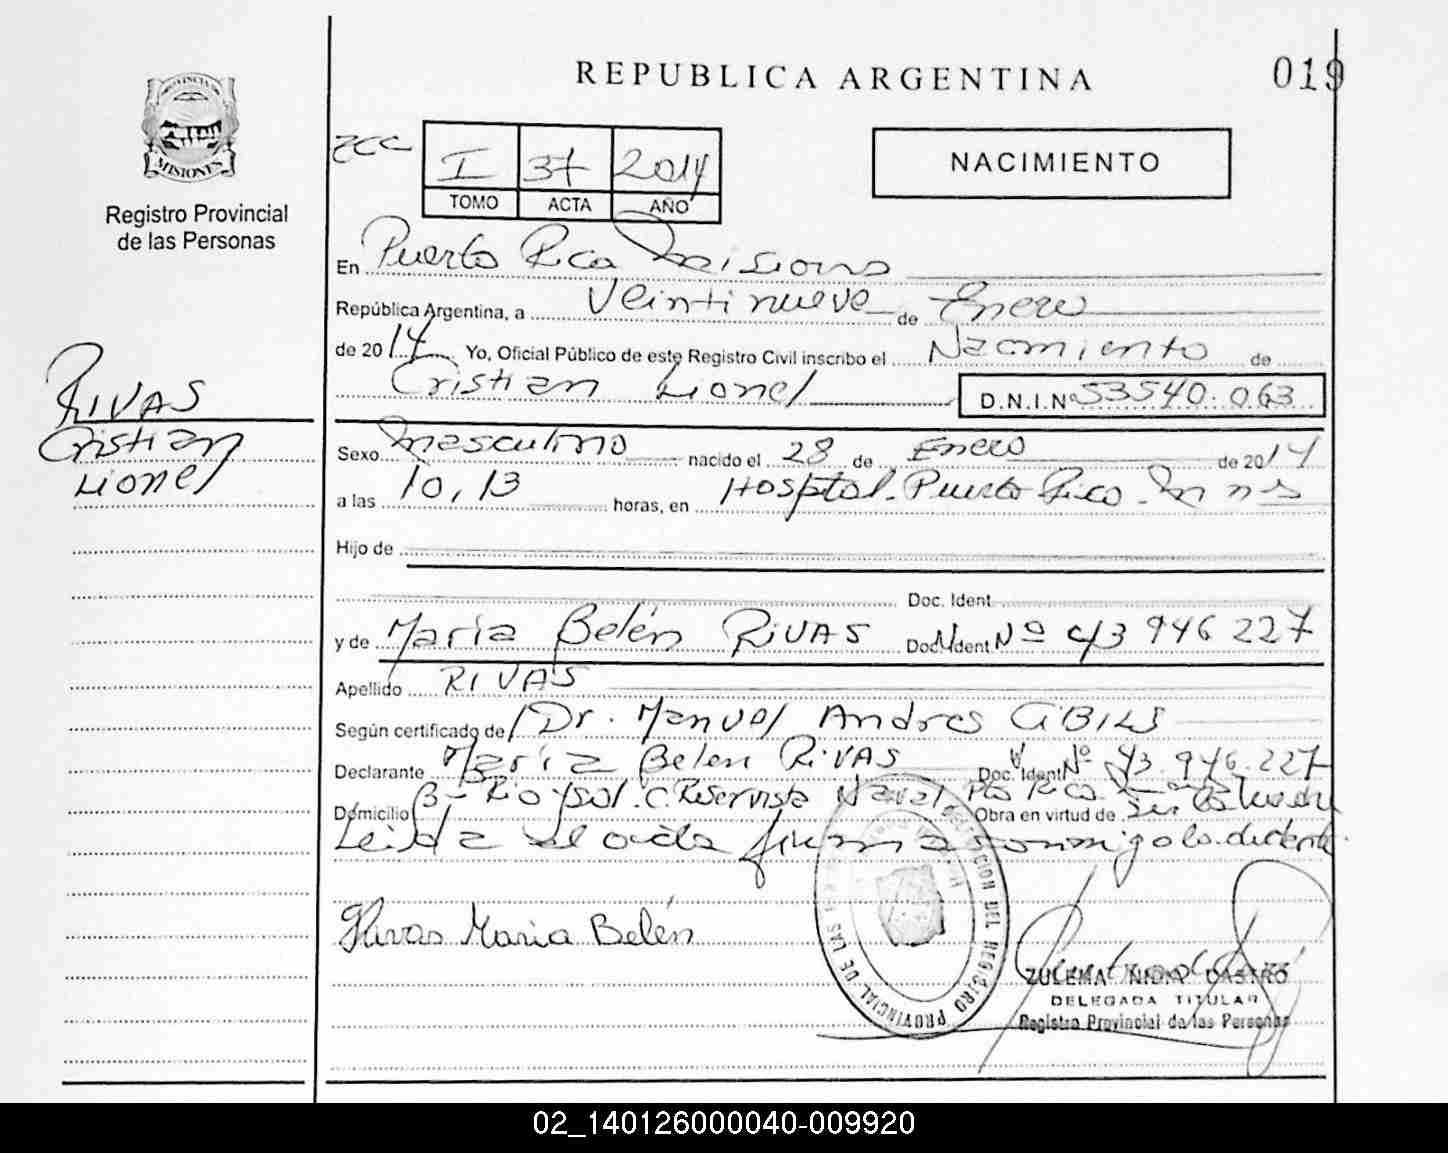 REPUBLICA ARGENTINA
019
PROVINCIA DE
MISIONES
Registro Provincial
de las Personas
I 37 2014
TOMO ACTA AÑO
NACIMIENTO
En Puerto Rico Misiones
República Argentina, a Veintinueve de Enero
de 2014 Yo, Oficial Público de este Registro Civil inscribo el Nacimiento de
Cristian Lionel D.N.I.Nº 53540.063
RIVAS
Cristian
Lionel
Sexo masculino nacido el 28 de Enero de 2014
a las 10,13 horas, en Hosptal. Puerto Rico Mnes
Hijo de
Doc. Ident.
y de María Belén RIVAS Doc. Ident Nº 43 946 227
Apellido RIVAS
Según certificado de Dr. Manuel Andres
Declarante María Belen RIVAS Doc. Ident Nº 43.946.227
Domicilio Bº Rio y sol. C. Reservista Naval Pto Rico Obra en virtud de
Leida firma conmigo la
Rivas Maria Belén
DELEGACION DEL REGISTRO PROVINCIAL DE LAS
ZULEMA NIDIA CASTRO
DELEGADA TITULAR
Registro Provincial de las Personas
02_140126000040-009920